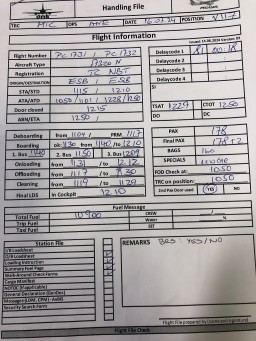 Handling File
TRC HTC OPS ANE DATE 16.02.24 POSITION
Flight Information
Flight Number PC 1731 / PC 1732
Aircraft Type
Registration TC NBT
ORIGIN/DESTINATION ESB / ESB
STA/STD 1115 / 1210
ATA/ATD
Door closed 1215
ARN/ETA 1250
Delaycode 1 81 00:18
Delaycode 2
Delaycode 3
Delaycode 4
SI
TSAT CTOT 1250
DO DC
Deboarding from 1104 / PRM 1117
Boarding ok: 1130 from 1140 / to 1210
1. Bus 1140 2. Bus 1150 3. Bus
Onloading from 1131 / to 1212
Offloading from 1117 / to 1130
Cleaning from 1119 / to 1129
Final LDS In Cockpit 12.10
PAX 178
Final PAX 178+2
BAGS 160
SPECIALS
FOD Check at: 1050
TRC on position: 1050
2nd Pax Door used YES NO
Fuel Message
Total Fuel 10900
Trip Fuel
Taxi Fuel
CREW /
Water
SET
Station File
REMARKS BRS YES/NO
I/B Loadsheet
O/B Loadsheet
Loading Instruction
Summary Fuel Page
Walk-Around Check Forms
Cargo Manifest
NOTOC (if applicable)
General Declaration (GenDec)
Messages (LDM, CPM) - AsBD
Security Search Form
Flight File prepared by (name and signature)
Flight File Check